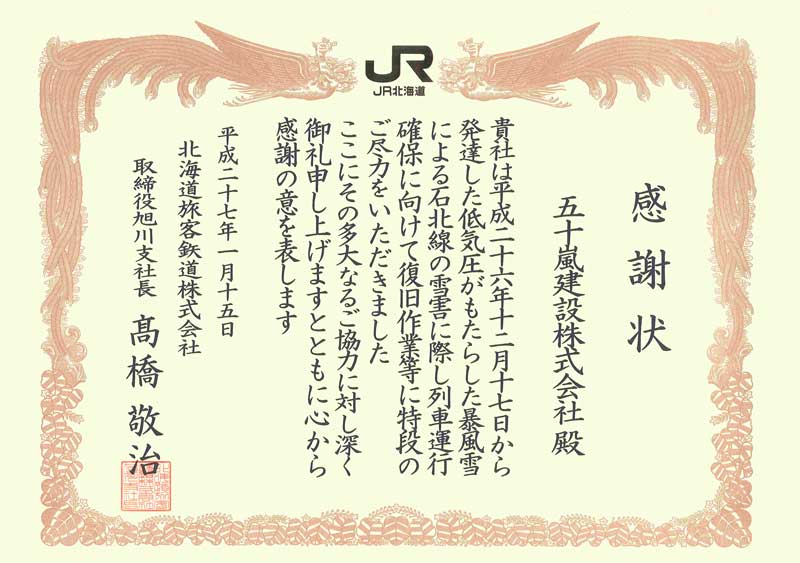 JR
JR北海道
感謝状
五十嵐建設株式会社 殿
貴社は平成二十六年十二月十七日から
発達した低気圧がもたらした暴風雪
による石北線の雪害に際し列車運行
確保に向けて復旧作業等に特段の
ご尽力をいただきました
ここにその多大なるご協力に対し深く
御礼申し上げますとともに心から
感謝の意を表します
平成二十七年一月十五日
北海道旅客鉄道株式会社
取締役旭川支社長 髙橋 敬治